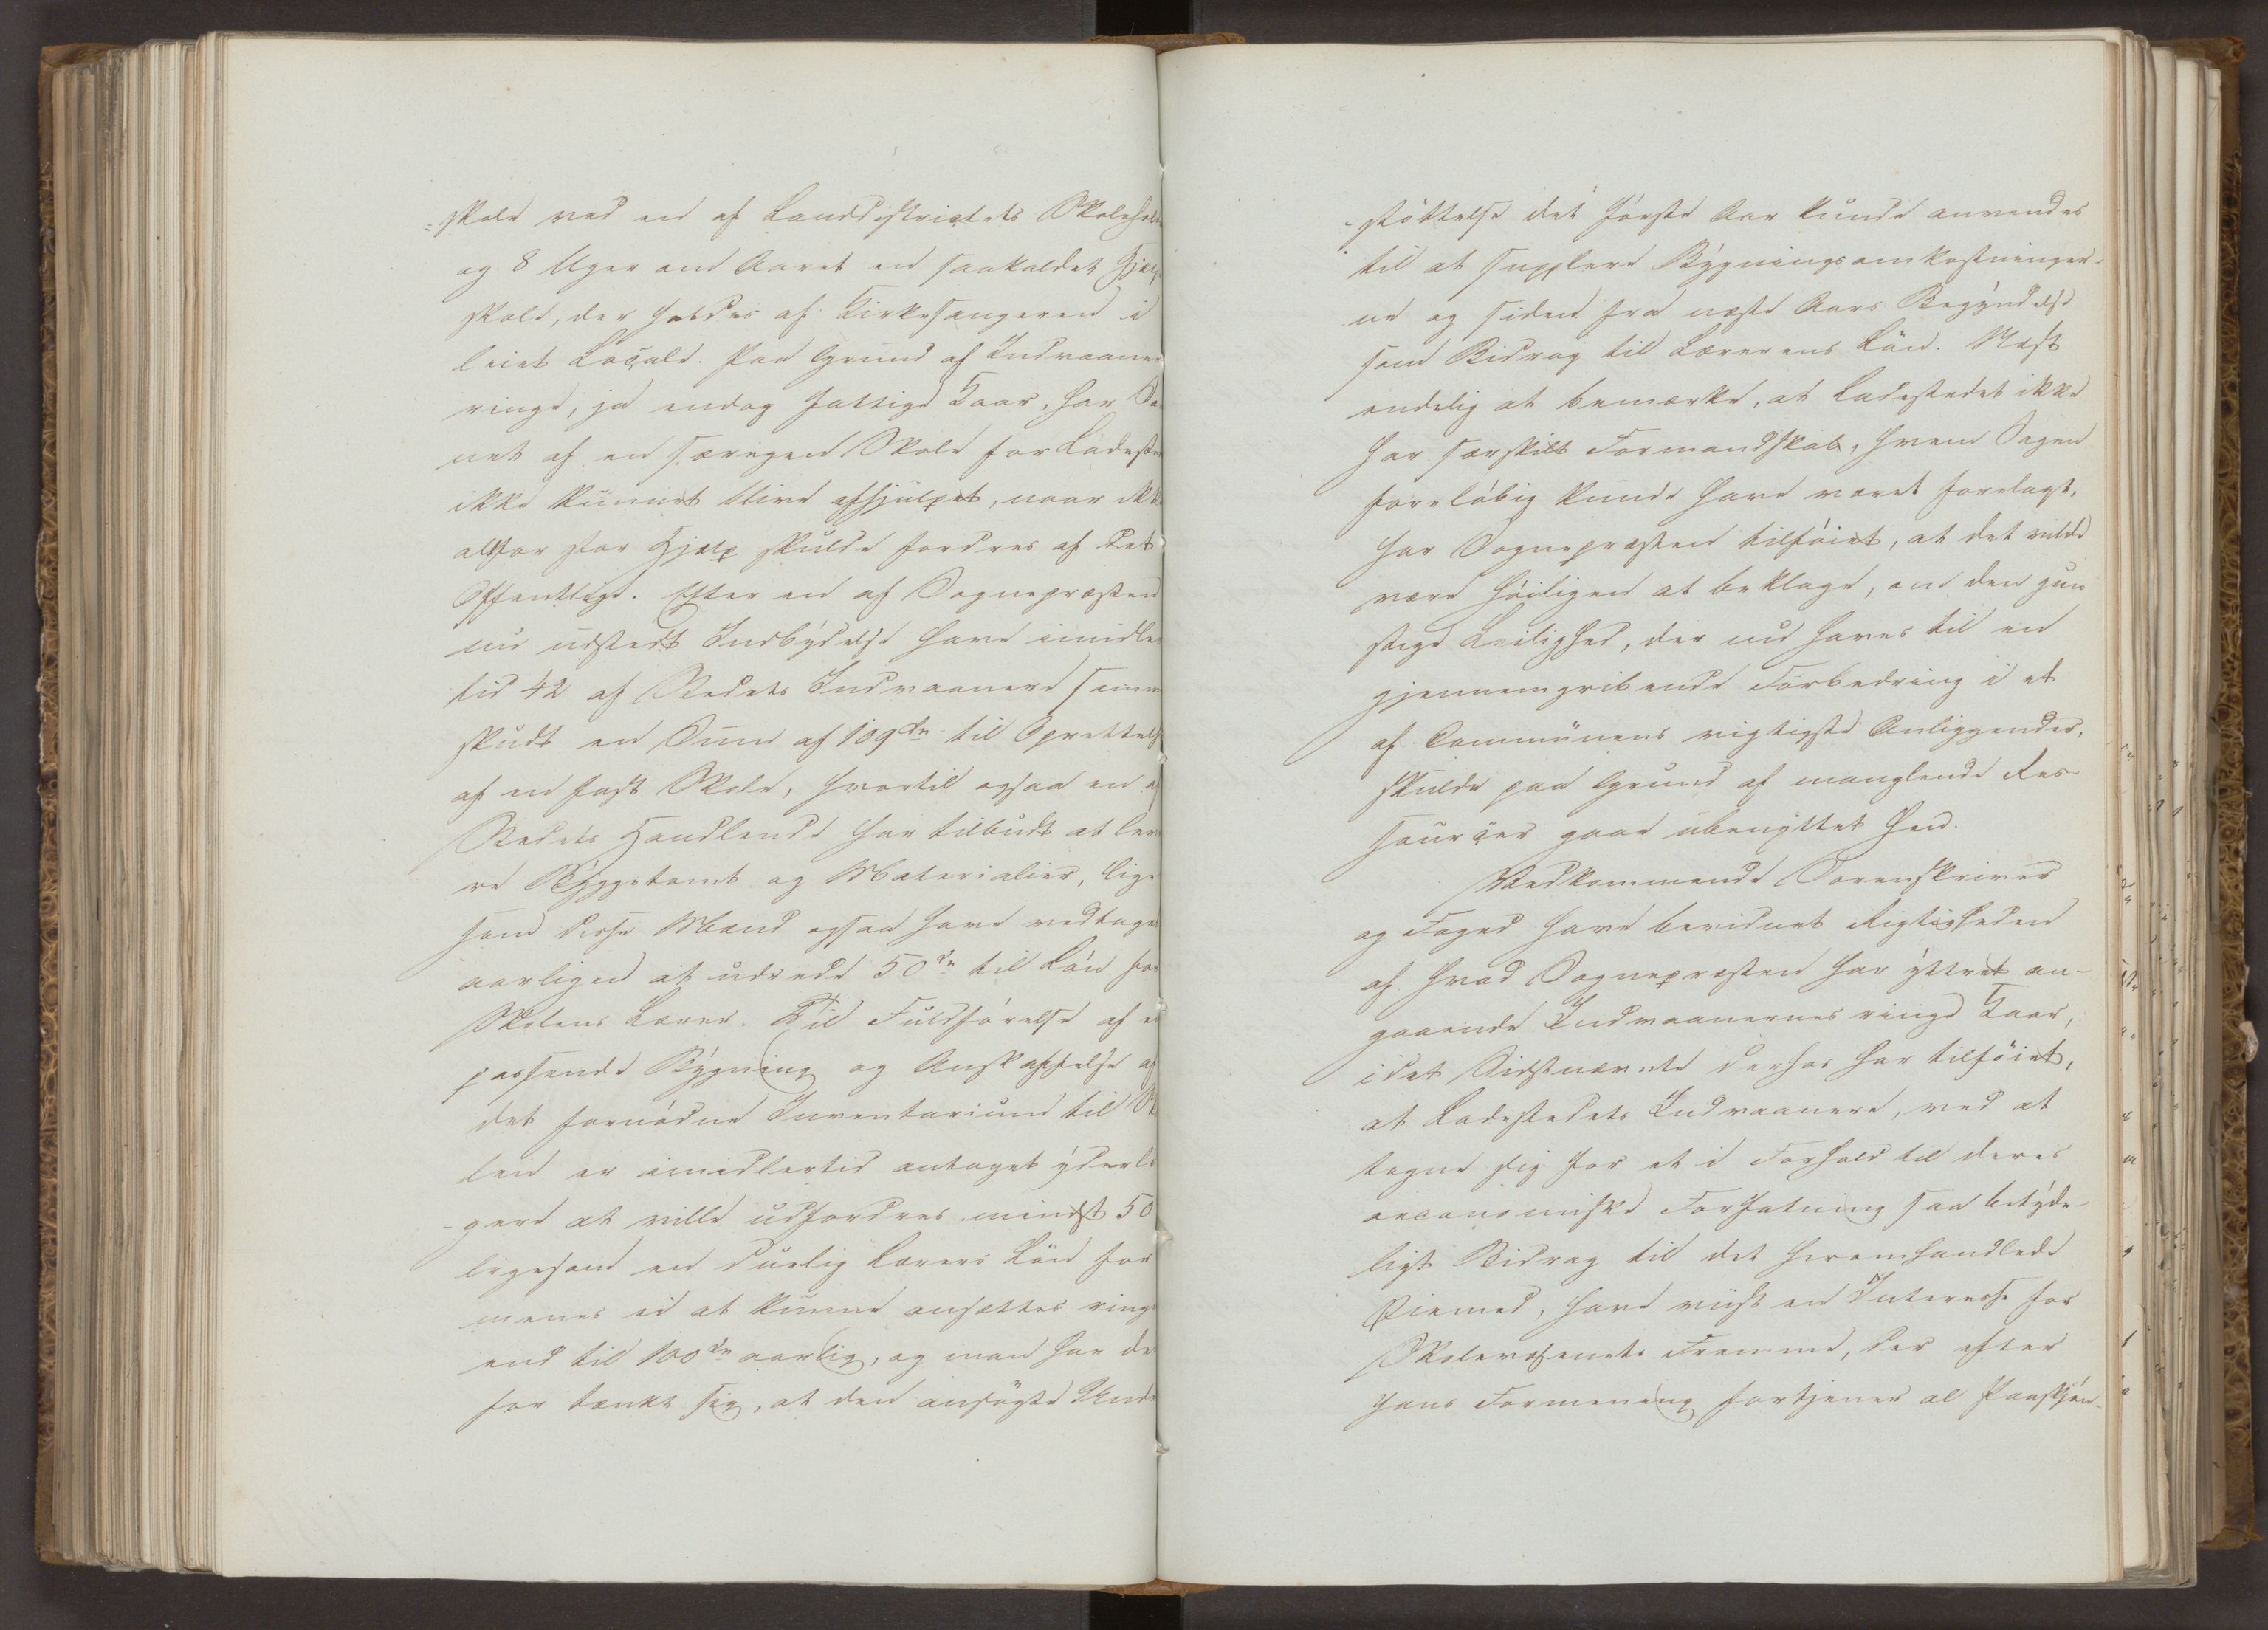 -skole ved en af Landdistrictets Skolehold
og 8 Uger om Aaret en saakaldet Hjælp
skole, der holdes af Kirkesangeren i
leiet Locale. Paa Grund af Indvaaner
ringe, ja endog fattige Kaar, har Sav
net af en særegen Skole for Ladested
ikke kunnet blive afhjulpet, naar ikke
altfor stor Hjælp skulde fordres af det
Offentlige. Efter en af Sognepræsten
nu udstedt Indbydelse have imidler
tid 42 af Stedets Indvaanere samm
skudt en Sum af 109 Sp til Oprettels
af en fast Skole, hvortil ogsaa en af
Stedets Handlende har tilbudt at leve
re Byggetomt og Materialier, lige
som disse Mænd ogsaa have vedtage
aarligen at udrede 50 Sp til Løn for
Skolens Lærer. Til Fuldførelse af en
passende Bygning og Anskaffelse af
det fornødne Inventarium til Sk
len er imidlertid antaget yderli
-gere at ville udfordres mindst 50
ligesom en duelig Lærers Løn for
menes ei at kunne ansættes ringe
end til 100 Sp aarlig, og man har de
for tænkt sig, at den ansøgte Under
-støttelse det første Aar kunde anvendes
til at supplere Bygningsomkostninger-
ne og siden fra næste Aars Begyndelse
som Bidrag til Lærerens Løn. Næst
endelig at bemærke, at Ladestedet ikke
har særskilt Formandskab, hvem Sagen
foreløbig kunde have været forelagt,
har Sognepræsten tilføiet, at det vilde
være høiligen at beklage, om den gun
stige Leilighed, der nu haves til en
gjennemgribende Forbedring i et
af Communens vigtigste Anliggender,
skulde paa Grund af manglende Res-
sourcer gaae ubenyttet hen.
Vedkommende Sorenskriver
og Foged have bevidnet Rigtigheden
af hvad Sognepræsten har yttret an-
gaaende Indvaanernes ringe Kaar,
idet Sidstnævnte derhos har tilføiet,
at Ladestedets Indvaanere, ved at
tegne sig for et i Forhold til deres
oeconomiske Forfatning saa betyde-
ligt Bidrag til det heromhandlede
Øiemed, have viist en Interesse for
Skolevæsenets Fremme, der efter
hans Formening fortjener al Paaskjøn-